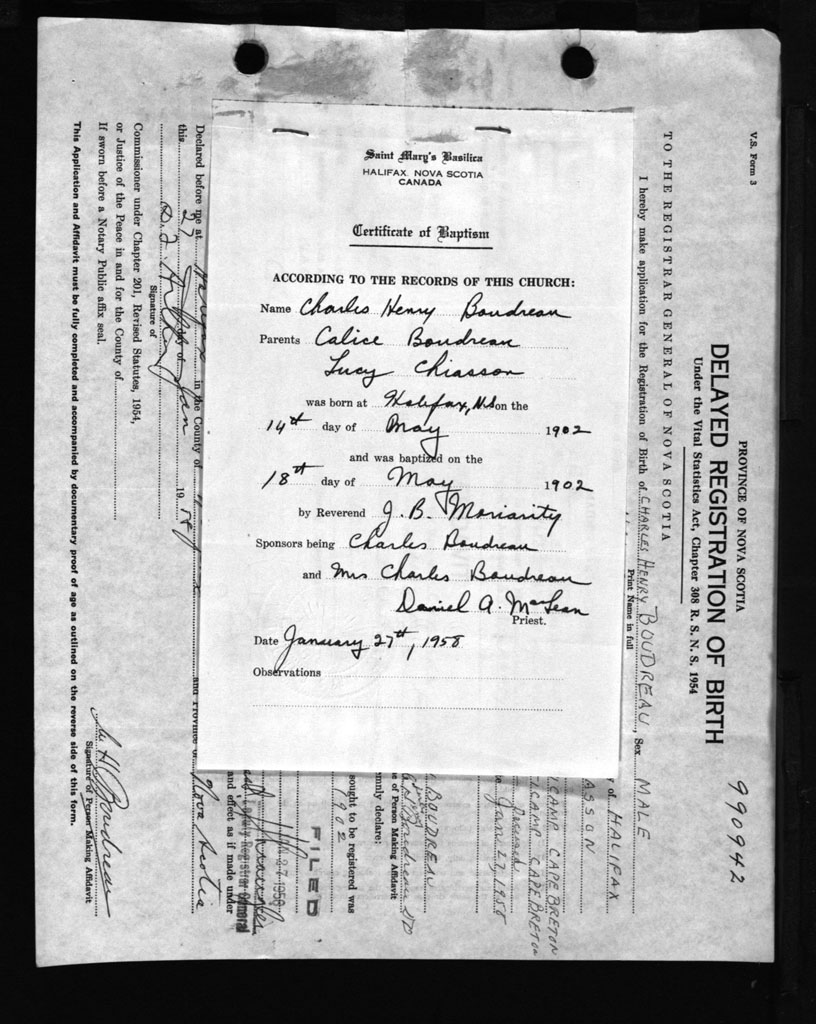 Saint Mary's Basilica
HALIFAX, NOVA SCOTIA
CANADA
Certificate of Baptism
ACCORDING TO THE RECORDS OF THIS CHURCH:
Name Charles Henry Boudreau
Parents Calice Boudreau
Lucy Chiasson
was born at Halifax, N.S. on the
14th day of May 1902
and was baptized on the
18th day of May 1902
by Reverend J. B. Moriarity
Sponsors being Charles Boudreau
and Mrs Charles Boudreau
Daniel A. MacLean
Priest.
Date January 27th, 1958
Observations
V.S. Form 3
990942
PROVINCE OF NOVA SCOTIA
DELAYED REGISTRATION OF BIRTH
Under the Vital Statistics Act, Chapter 308 R. S. N. S. 1954
TO THE REGISTRAR GENERAL OF NOVA SCOTIA
I hereby make application for the Registration of Birth of CHARLES HENRY BOUDREAU, Sex MALE
Print Name in full
y of HALIFAX
ASSON
CAMP CAPE BRETON
CAMP CAPE BRETON
Jan 27, 1958
BOUDREAU
e of Person Making Affidavit
mnly declare:
sought to be registered was
1902
FILED
and effect as if made under
Declared before me at Halifax in the County of
and Province of Nova Scotia
this 27 day of Jan 19
Signature of
Commissioner under Chapter 201, Revised Statutes, 1954,
or Justice of the Peace in and for the County of
If sworn before a Notary Public affix seal.
Signature of Person Making Affidavit
This Application and Affidavit must be fully completed and accompanied by documentary proof of age as outlined on the reverse side of this form.